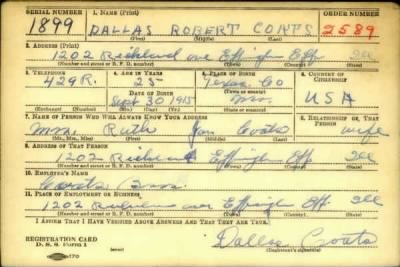 SERIAL NUMBER 1. NAME (Print) ORDER NUMBER
1899 DALLAS ROBERT COATS 2589
(First) (Middle) (Last)
2. ADDRESS (Print)
1202 Effingham Eff Ill
(Number and street or R. F. D. number) (Town) (County) (State)
3. TELEPHONE 4. AGE IN YEARS 5. PLACE OF BIRTH 6. COUNTRY OF CITIZENSHIP
429R. 25 Texas Co
DATE OF BIRTH (Town or county)
Sept 30 1915 Mo USA
(Exchange) (No.) (Mo.) (Day) (Yr.) (State or country)
7. NAME OF PERSON WHO WILL ALWAYS KNOW YOUR ADDRESS 8. RELATIONSHIP OF THAT PERSON
Mrs Ruth Coats wife
(Mr., Mrs., Miss) (First) (Middle) (Last)
9. ADDRESS OF THAT PERSON
1202 Effingham Eff Ill
(Number and street or R. F. D. number) (Town) (County) (State)
10. EMPLOYER'S NAME
Coats
11. PLACE OF EMPLOYMENT OR BUSINESS
1202 Effingham Eff. Ill
(Number and street or R. F. D. number) (Town) (County) (State)
I AFFIRM THAT I HAVE VERIFIED ABOVE ANSWERS AND THAT THEY ARE TRUE.
REGISTRATION CARD
D. S. S. FORM 1 Dallas Coats
(Registrant's signature)